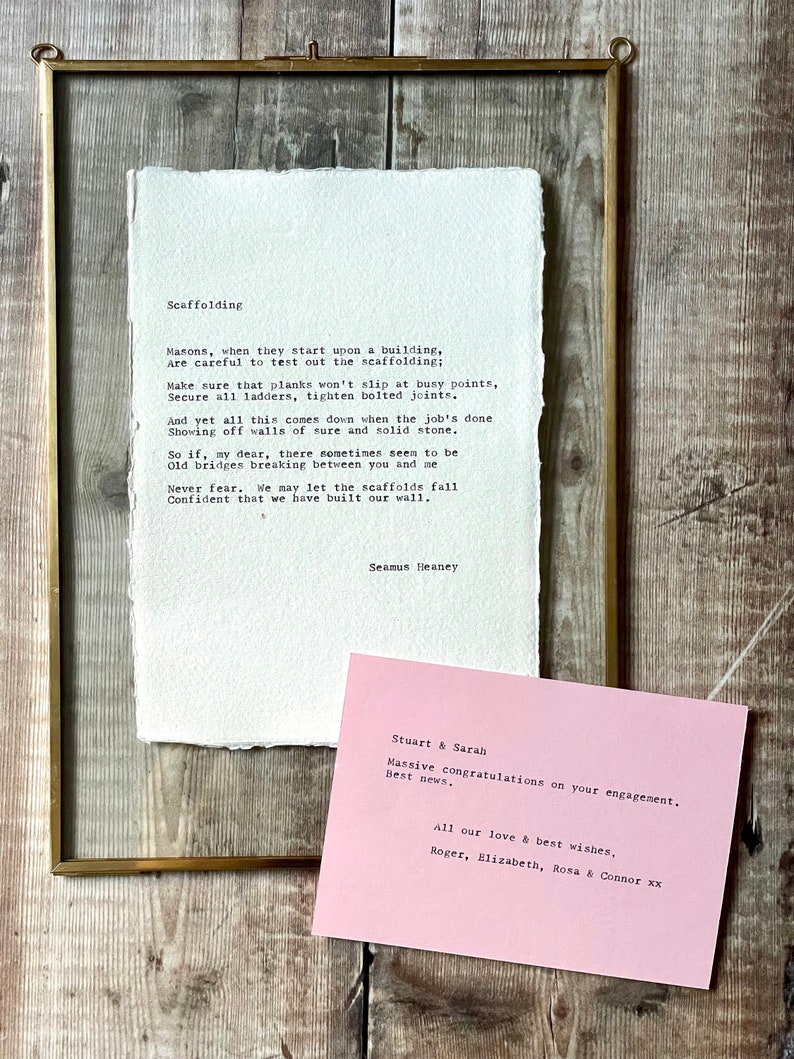 Scaffolding
Masons, when they start upon a building,
Are careful to test out the scaffolding;
Make sure that planks won't slip at busy points,
Secure all ladders, tighten bolted joints.
And yet all this comes down when the job's done
Showing off walls of sure and solid stone.
So if, my dear, there sometimes seem to be
Old bridges breaking between you and me
Never fear.  We may let the scaffolds fall
Confident that we have built our wall.
Seamus Heaney
Stuart & Sarah
Massive congratulations on your engagement.
Best news.
All our love & best wishes,
Roger, Elizabeth, Rosa & Connor xx